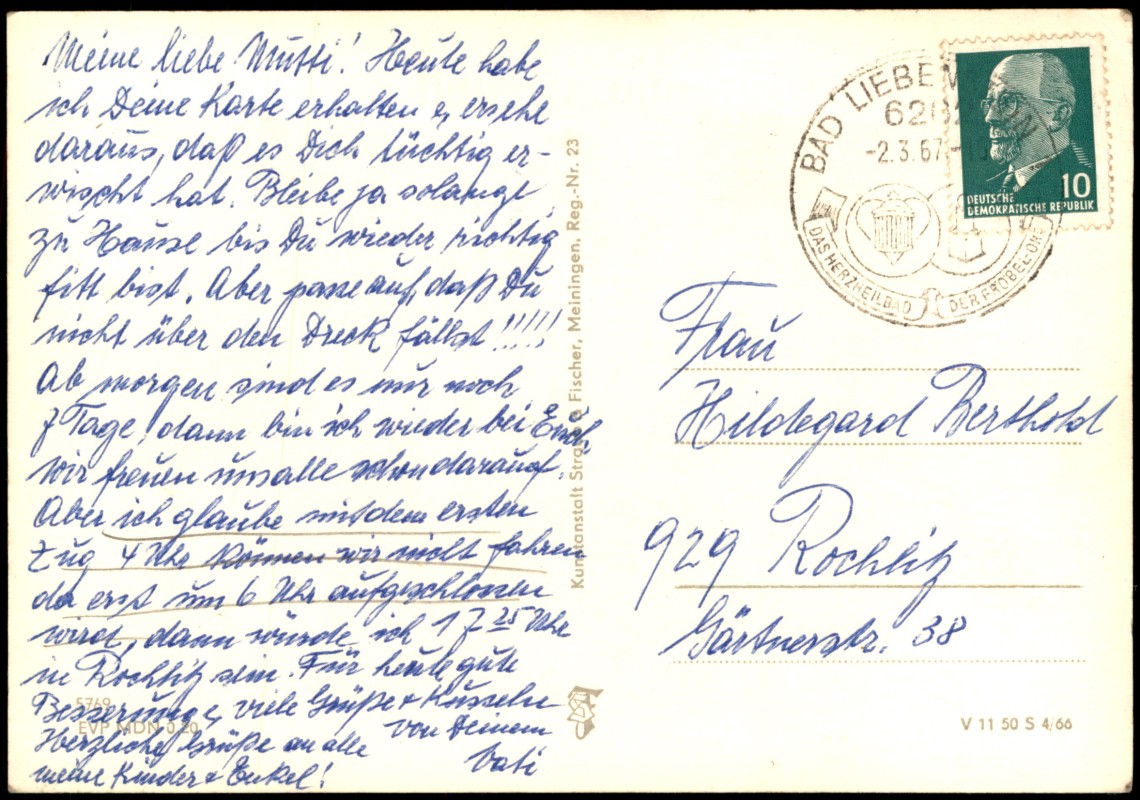 Meine liebe Mutti! Heute habe
ich Deine Karte erhalten u. ersehe
daraus, daß es Dich tüchtig er-
wischt hat. Bleibe ja solange
zu Hause bis Du wieder richtig
fitt bist. Aber passe auf, daß Du
nicht über den Dreck fällst!!!!!
Ab morgen sind es nur noch
7 Tage, dann bin ich wieder bei Euch.
Wir freuen uns alle schon darauf.
Aber ich glaube mit dem ersten
Zug 4 Uhr können wir nicht fahren
da erst um 6 Uhr aufgeschlossen
wird, dann würde ich 17 25 Uhr
in Rochlitz sein. Für heute gute
Besserung, viele Grüße + Küsseln
von Deinem
Vati
Herzliche Grüße an alle
meine Kinder + Enkel!
5769
EVP MDN 0,20
Kunstanstalt Straub & Fischer, Meiningen, Reg.-Nr. 23
BAD LIEBENW
6202
-2.3.67
DAS HERZHEILBAD
DER FRÖBEL-ORT
10
DEUTSCHE
DEMOKRATISCHE REPUBLIK
Frau
Hildegard Berthold
929 Rochlitz
Gärtnerstr. 38
V 11 50 S 4/66